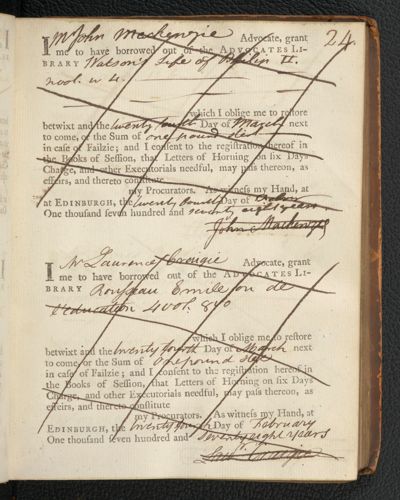 24.
I Mr John Mackenzie Advocate, grant
me to have borrowed out of the ADVOCATES LI-
BRARY Watson's Life of Philip II.
2 vol. 4.
which I oblige me to reſtore
betwixt and the twenty fourth Day of March next
to come, or the Sum of one pound
in caſe of Failzie; and I conſent to the regiſtration hereof in
the Books of Seſſion, that Letters of Horning on ſix Days
Charge, and other Executorials needful, may paſs thereon, as
effeirs, and thereto conſtitute
my Procurators. As witneſs my Hand, at
at EDINBURGH, the twenty fourth Day of
One thouſand ſeven hundred and seventy eight years
John Mackenzie
I Mr Laurence Craigie Advocate, grant
me to have borrowed out of the ADVOCATES LI-
BRARY Rousseau Emile ou de
l'education 4 vol. 8vo
which I oblige me to reſtore
betwixt and the twenty fourth Day of March next
to come, or the Sum of One pound
in caſe of Failzie; and I conſent to the regiſtration hereof in
the Books of Seſſion, that Letters of Horning on ſix Days
Charge, and other Executorials needful, may paſs thereon, as
effeirs, and thereto conſtitute
my Procurators. As witneſs my Hand, at
EDINBURGH, the twenty fourth Day of February
One thouſand ſeven hundred and Seventy eight years
Laur. Craigie